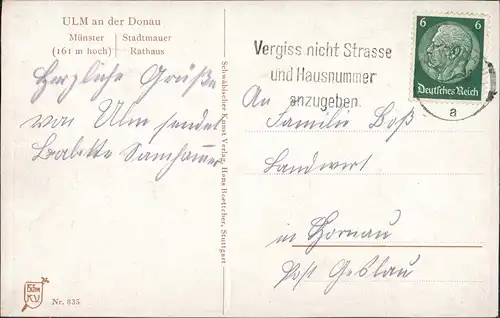 ULM an der Donau
Münster | Stadtmauer
(161 m hoch) | Rathaus
Herzliche Grüße
von Ulm sendet
Babette
Schwäbischer Kunst Verlag, Hans Boettcher, Stuttgart
Nr. 835
Vergiss nicht Strasse
und Hausnummer
anzugeben
6 6
Deutsches Reich
a
An
Familie Boß
Landwirt
in Hornau
Post Geslau